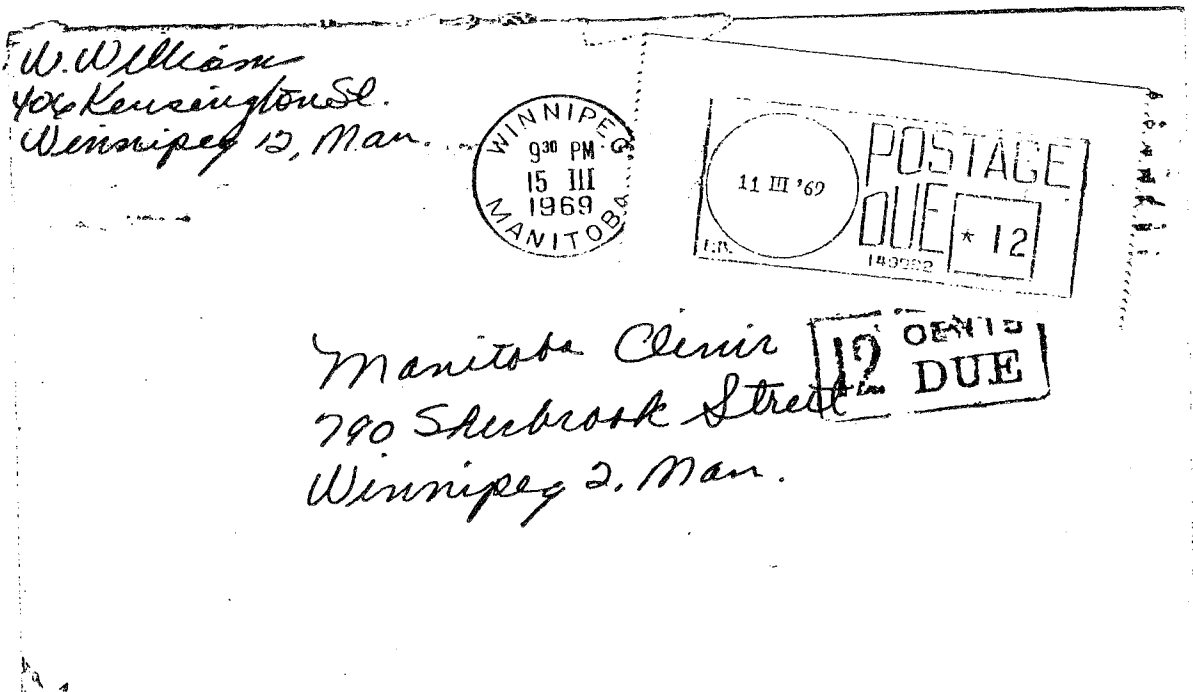 W. Williams
406 Kensington St.
Winnipeg 12, Man.
WINNIPEG
9 30 PM
15 III
1969
MANITOBA
11 III '69
POSTAGE
DUE
* 12
Manitoba Clinic
790 Sherbrook Street
Winnipeg 2, Man.
12 CENTS
DUE